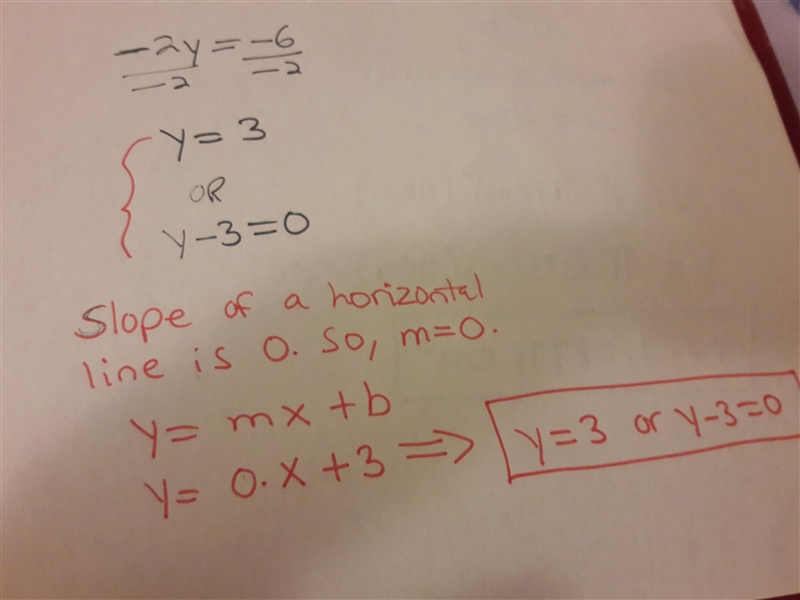 -2y = -6
-2 -2
y = 3
OR
y-3=0
Slope of a horizontal
line is 0. so, m=0.
y= mx+b
y= 0.x+3 ⇒ y=3 or y-3=0